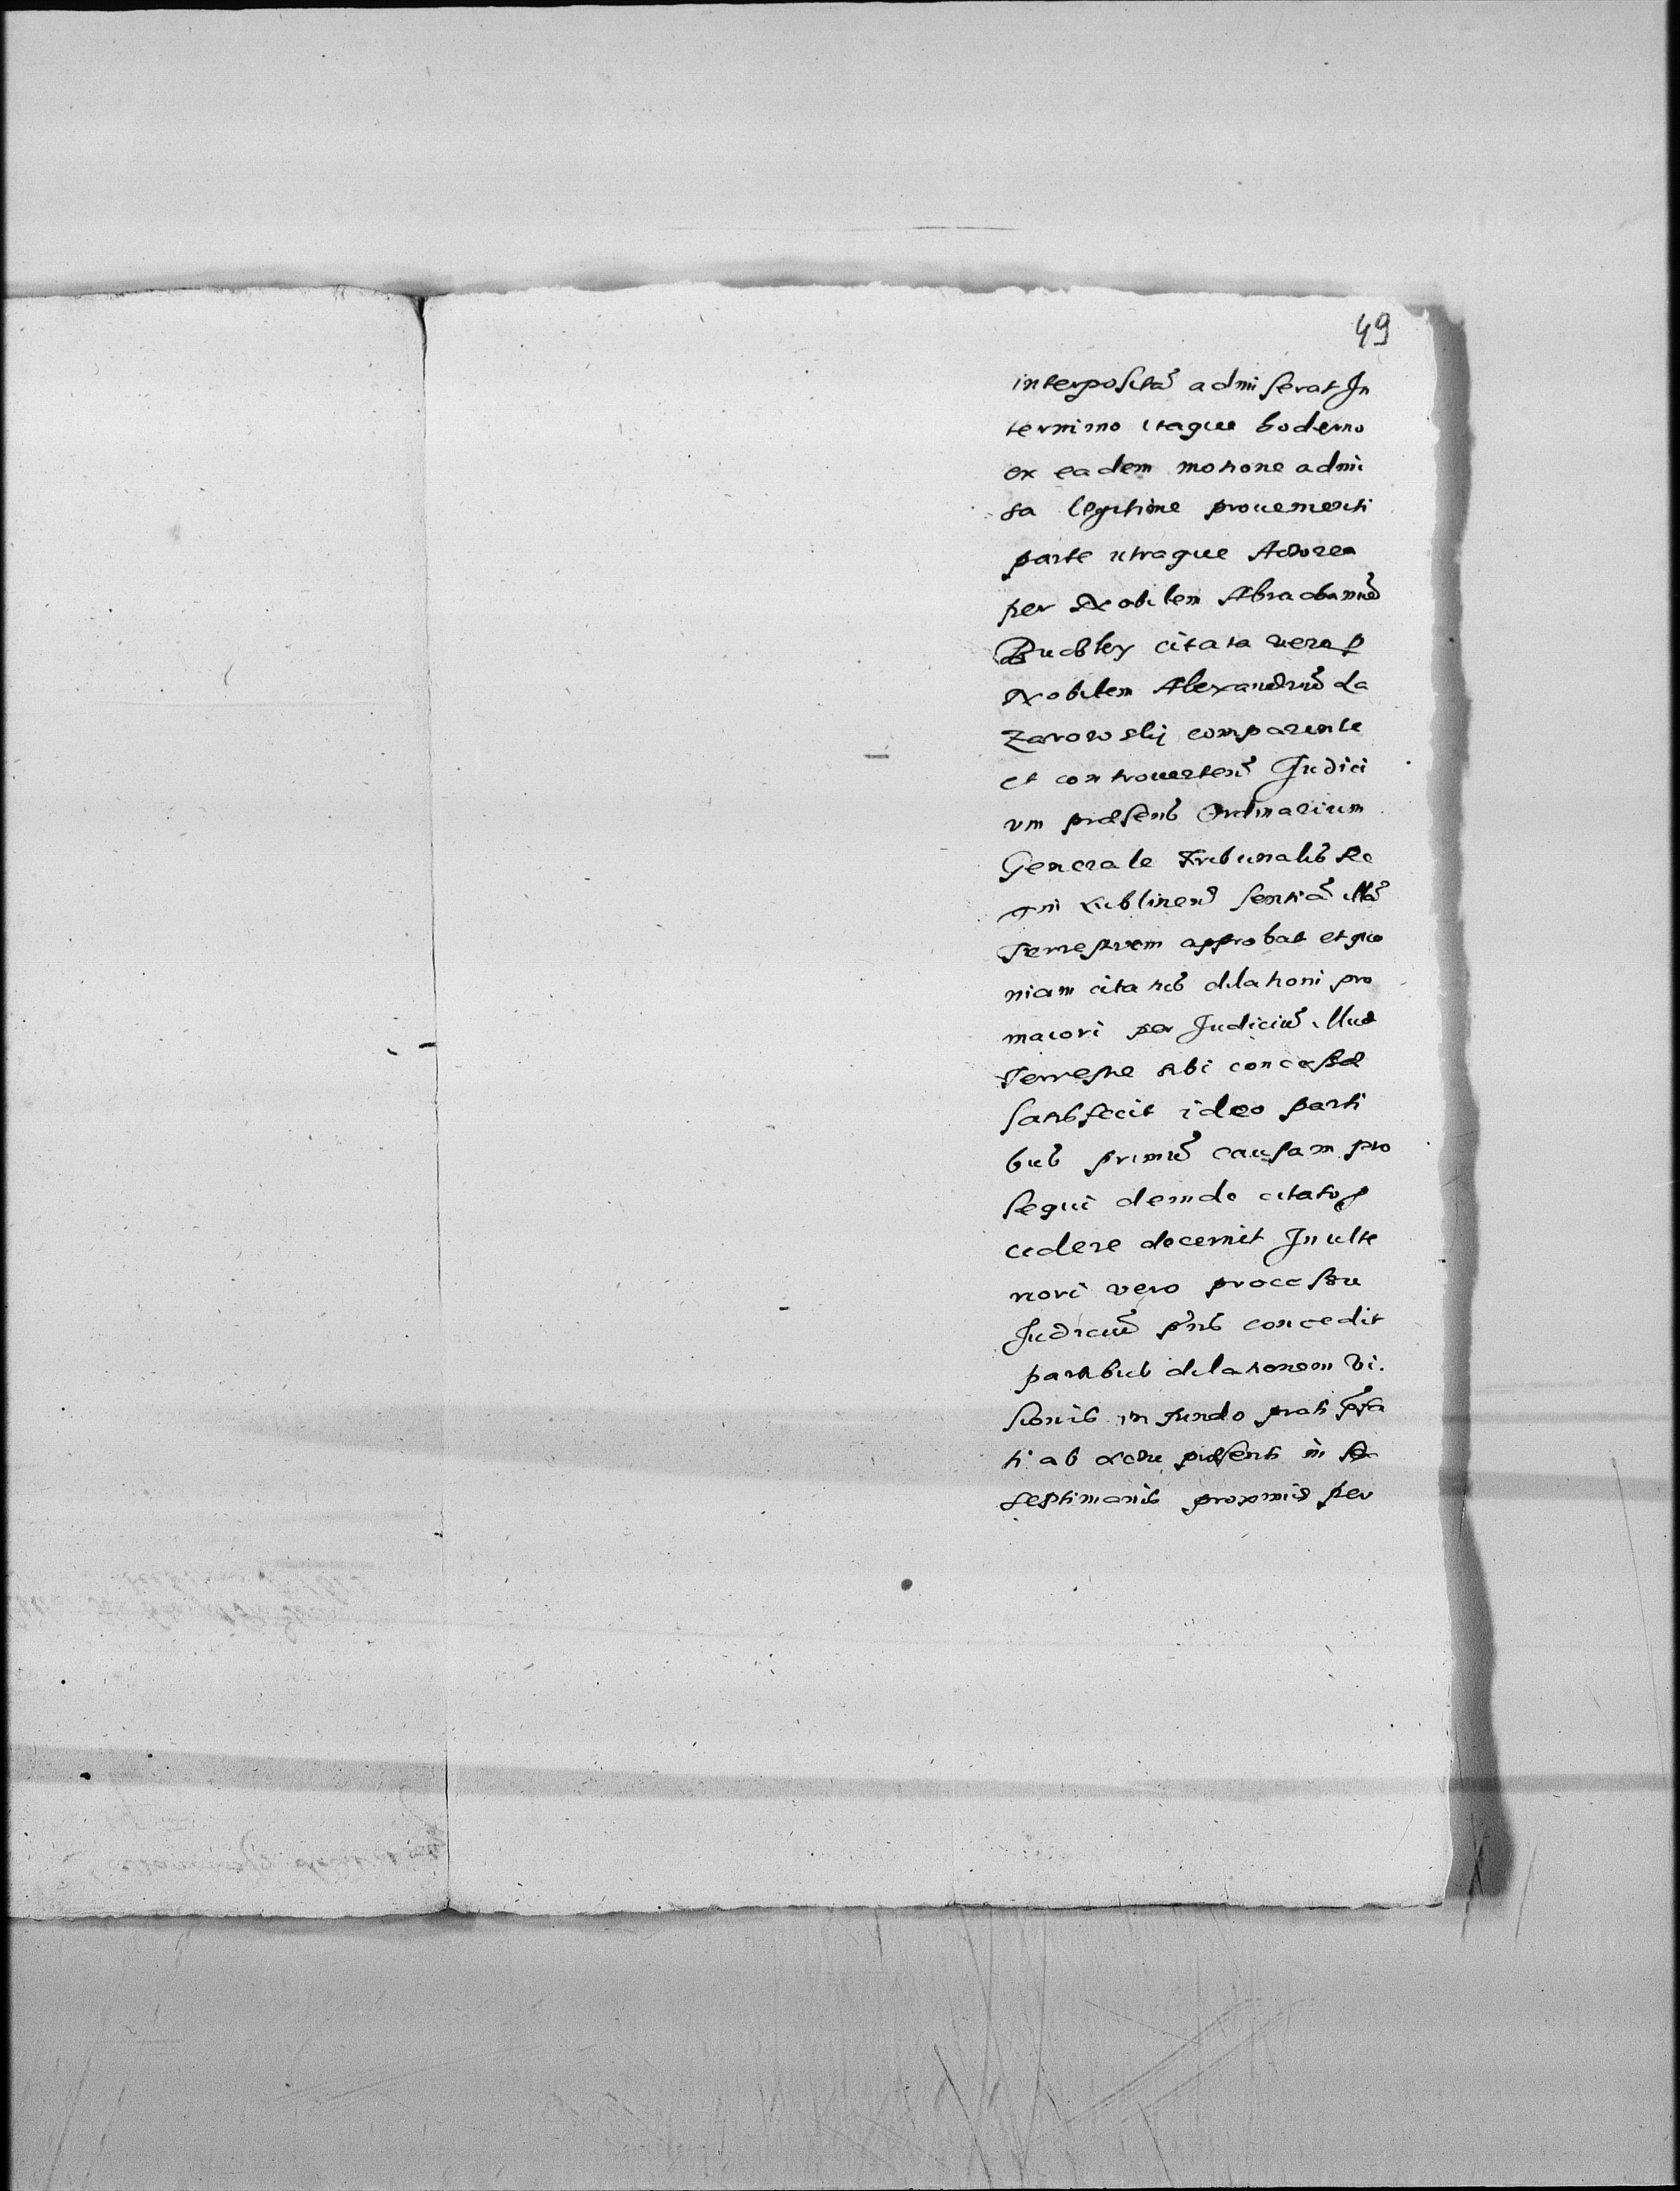 49
interpositã admiserat In
termino itaque hodierno
ex eadem motione admi
sa legitime provenienti
parte utraque Actorea
per Nobilem Abrahamũ
citata vero p
Nobilem Alexandrũ La
Zarowskij comparente
et controvertenʾ Judici
um præsens Ordinarium
Generale Tribunalis Re
gni Lublinenʾ sentiã illã
Terrestrem approbat et quo
niam citatus dilationi pro
maiori per Judiciũ illud
Terrestre sibi concessæ
satisfecit ideo parti
bus primũ causam pro
sequi deinde citato p
cedere decernit In ulte
riori vero processu
Judiciũ pñs concedit
partibus dilationem vi.
sionis in fundo prati
ti ab actu præsenti in
septimanis proximis per